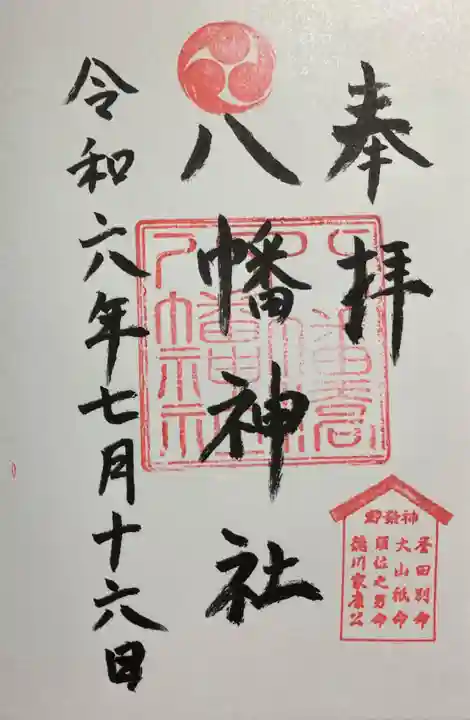 奉拝
八幡神社
令和六年七月十六日
御祭神
誉田別命
大山祇命
須佐之男命
徳川家康公